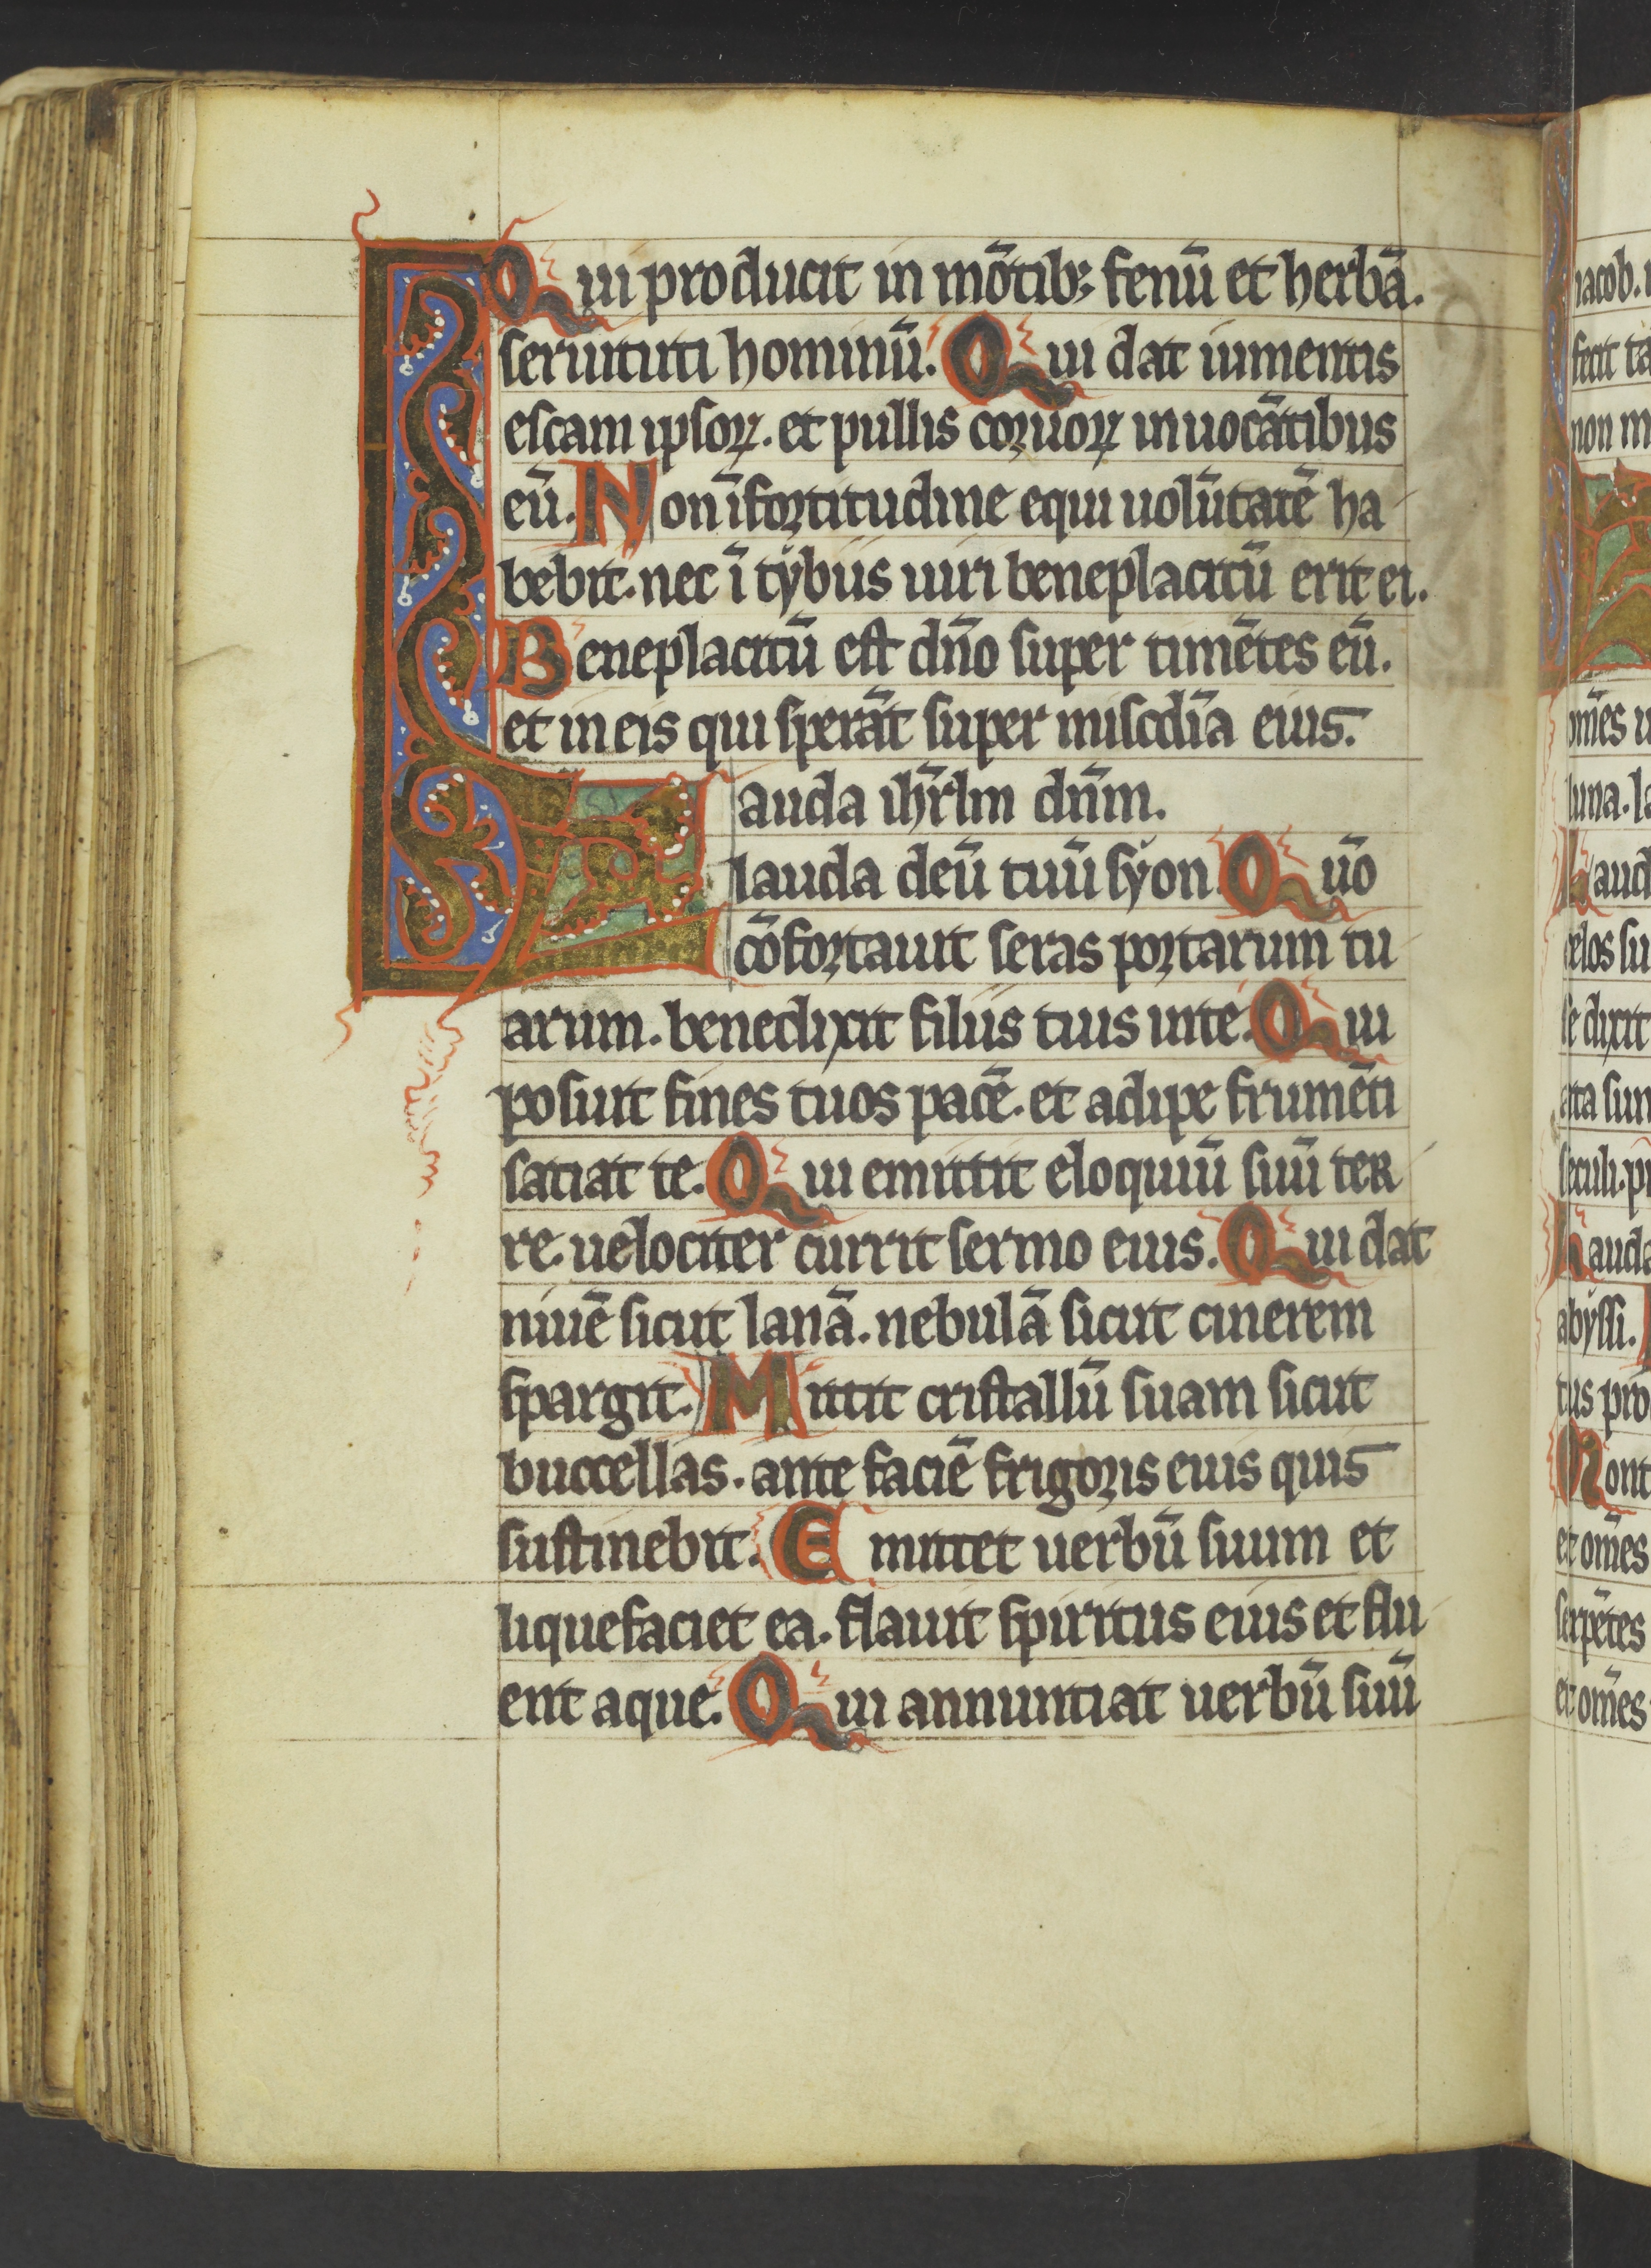 Qui producit in mōtib; fenū et herbā.
seruituti hominū. Qui dat iumentis
escam ipsoꝝ. et pullis coruoꝝ inuocātibus
eū. Non ī fortitudine equi uolūtatē ha
bebit. nec ī tybiis uiri beneplacitū erit ei.
Beneplacitū est dn̄o super timētes eū.
et in eis qui sperāt super misc̄dia eius.
Lauda ihrl̄m dn̄m.
lauda deū tuū syon. Qūo
cōfortauit seras portarum tu
arum. benedixit filiis tuis inte. Qui
posuit fines tuos pacē. et adipe frumēti
satiat te. Qui emittit eloquiū suū ter
re. uelociter currit sermo eius. Qui dat
niuē sicut lanā. nebulā sicut cinerem
spargit. Mittit cristallū suam sicut
buccellas. ante faciē frigoris eius quis
sustinebit. Emittet uerbū suum et
liquefaciet ea. flauit spiritus eius et flu
ent aque. Qui annuntiat uerbū suū
iacob.
fecit ta
non
omēs
luna.
Laud
celos su
se dixit
ata sun
seculi.
Lauda
abyssi.
tus pro
Mont
et omēs
serpētes
et omēs